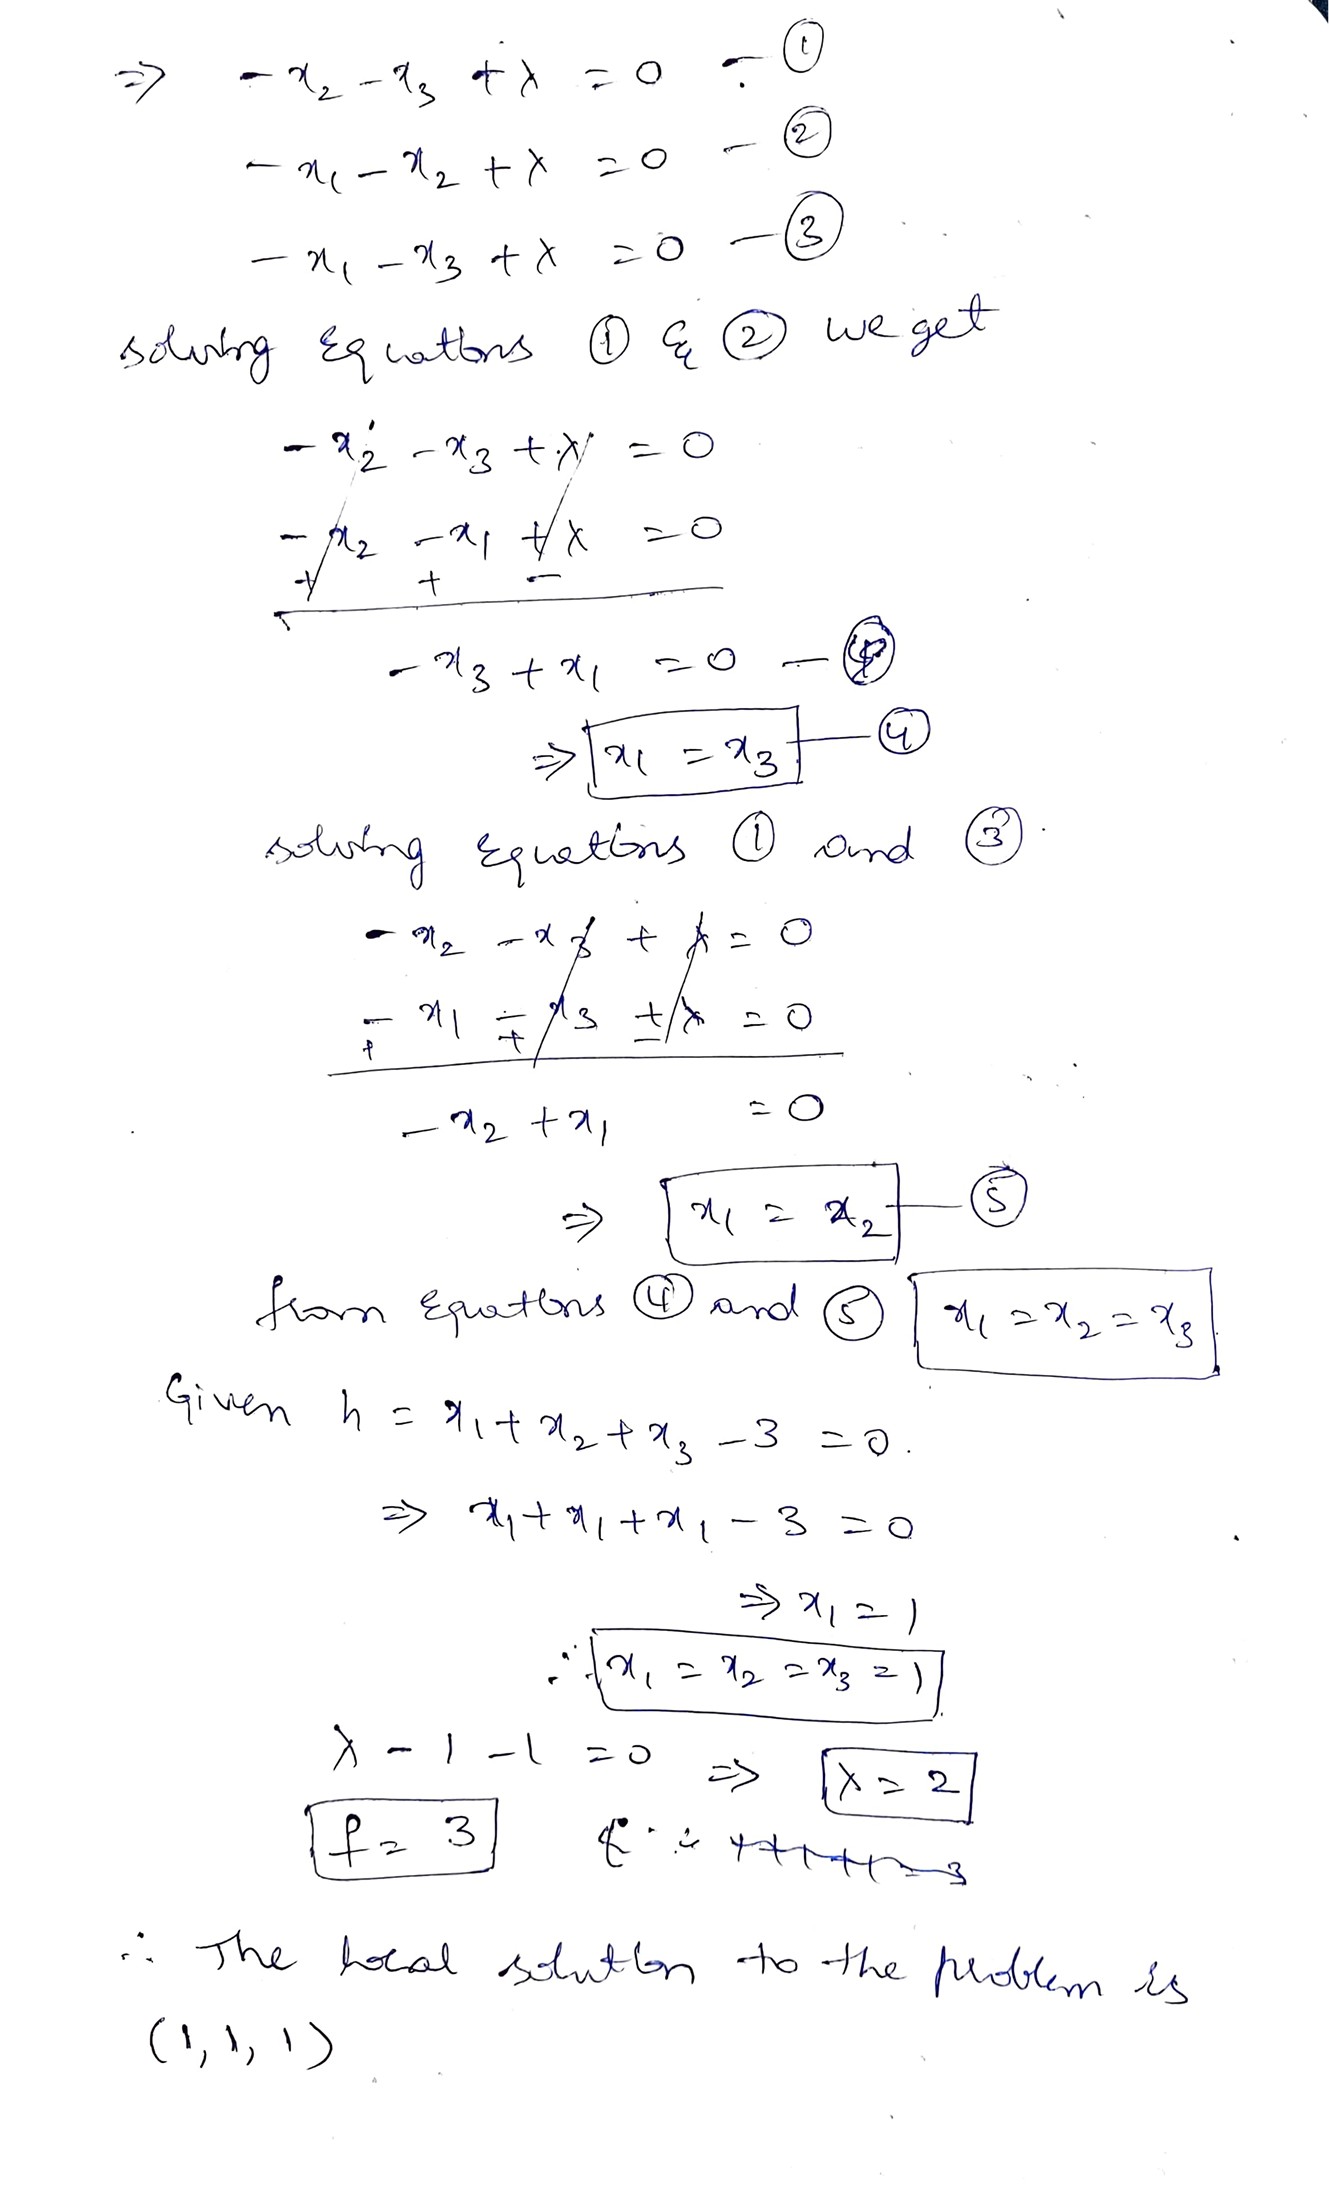 ⇒ -x₂ - x₃ + λ = 0 - ①
-x₁ - x₂ + λ = 0 - ②
-x₁ - x₃ + λ = 0 - ③
solving Equations ① & ② we get
-x₂ - x₃ + λ = 0
-x₂ - x₁ + λ = 0
+ + -
-x₃ + x₁ = 0 -
⇒ x₁ = x₃ - ④
solving Equations ① and ③
-x₂ - x₃ + λ = 0
-x₁ - x₃ + λ = 0
+ + -
-x₂ + x₁ = 0
⇒ x₁ = x₂ - ⑤
from Equations ④ and ⑤ x₁ = x₂ = x₃
Given h = x₁ + x₂ + x₃ - 3 = 0.
⇒ x₁ + x₁ + x₁ - 3 = 0
⇒ x₁ = 1
∴ x₁ = x₂ = x₃ = 1
λ - 1 - 1 = 0 ⇒ λ = 2
f = 3
∴ The local solution to the problem is
(1, 1, 1)